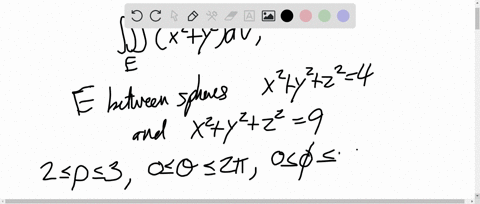 ∭_E (x²+y²)dV,
E between spheres x²+y²+z²=4
and x²+y²+z²=9
2≤ρ≤3, 0≤θ≤2π, 0≤ϕ≤